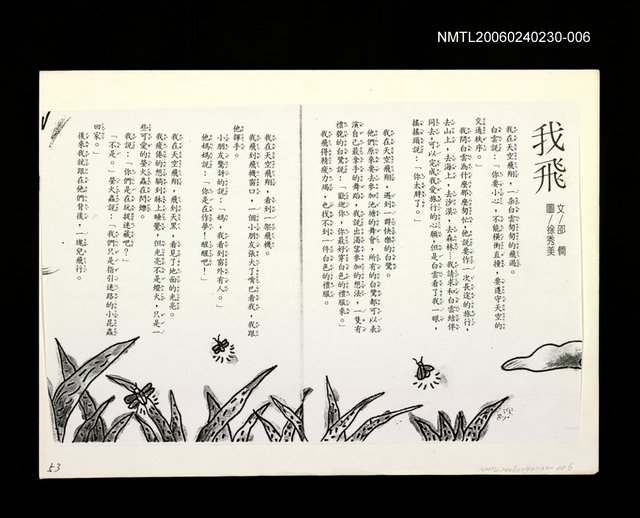 NMTL20060240230-006
我飛
文/邵僩
圖/徐秀美
我在天空飛翔，一朵白雲匆匆的飛過。
白雲說：「你要小心，不能橫衝直撞，要遵守天空的
交通秩序。」
我問白雲為什麼那麼匆忙，他說要作一次長途的旅行，
去山上，去海上，去沙漠，去森林…我請求和白雲結伴
同去，可以完成我愛旅行的心願，但是白雲看了我一眼，
搖搖頭說：「你太胖了。」
我在天空飛翔，遇到一群快樂的白鷺。
他們原來要去參加池塘的舞會，所有的白鷺都可以表
演自己最拿手的舞蹈，我說出渴望參加的想法，一隻有
禮貌的白鷺說：「歡迎你，你最好穿白色的禮服來。」
我飛得精疲力竭，也找不到一件白色的禮服。
我在天空飛翔，看到一架飛機。
我飛到飛機窗口，一個小朋友張大了嘴巴看我，我跟
他揮手。
小朋友驚訝的說：「媽，我看到窗外有人。」
他媽媽說：「你是在作夢！醒醒吧！」
我在天空飛翔，飛到天黑，看見了地面的光亮。
我疲倦的想躺到床上睡覺，但光亮不是燈火，只是一
些可愛的螢火蟲在閃爍。
我說：「你們是在玩捉迷藏吧？」
「不是。」螢火蟲說：「我們只是指引迷路的小昆蟲
回家。」
後來我就跟在他們背後，一塊兒飛行。
53
NMTL20060240230-006